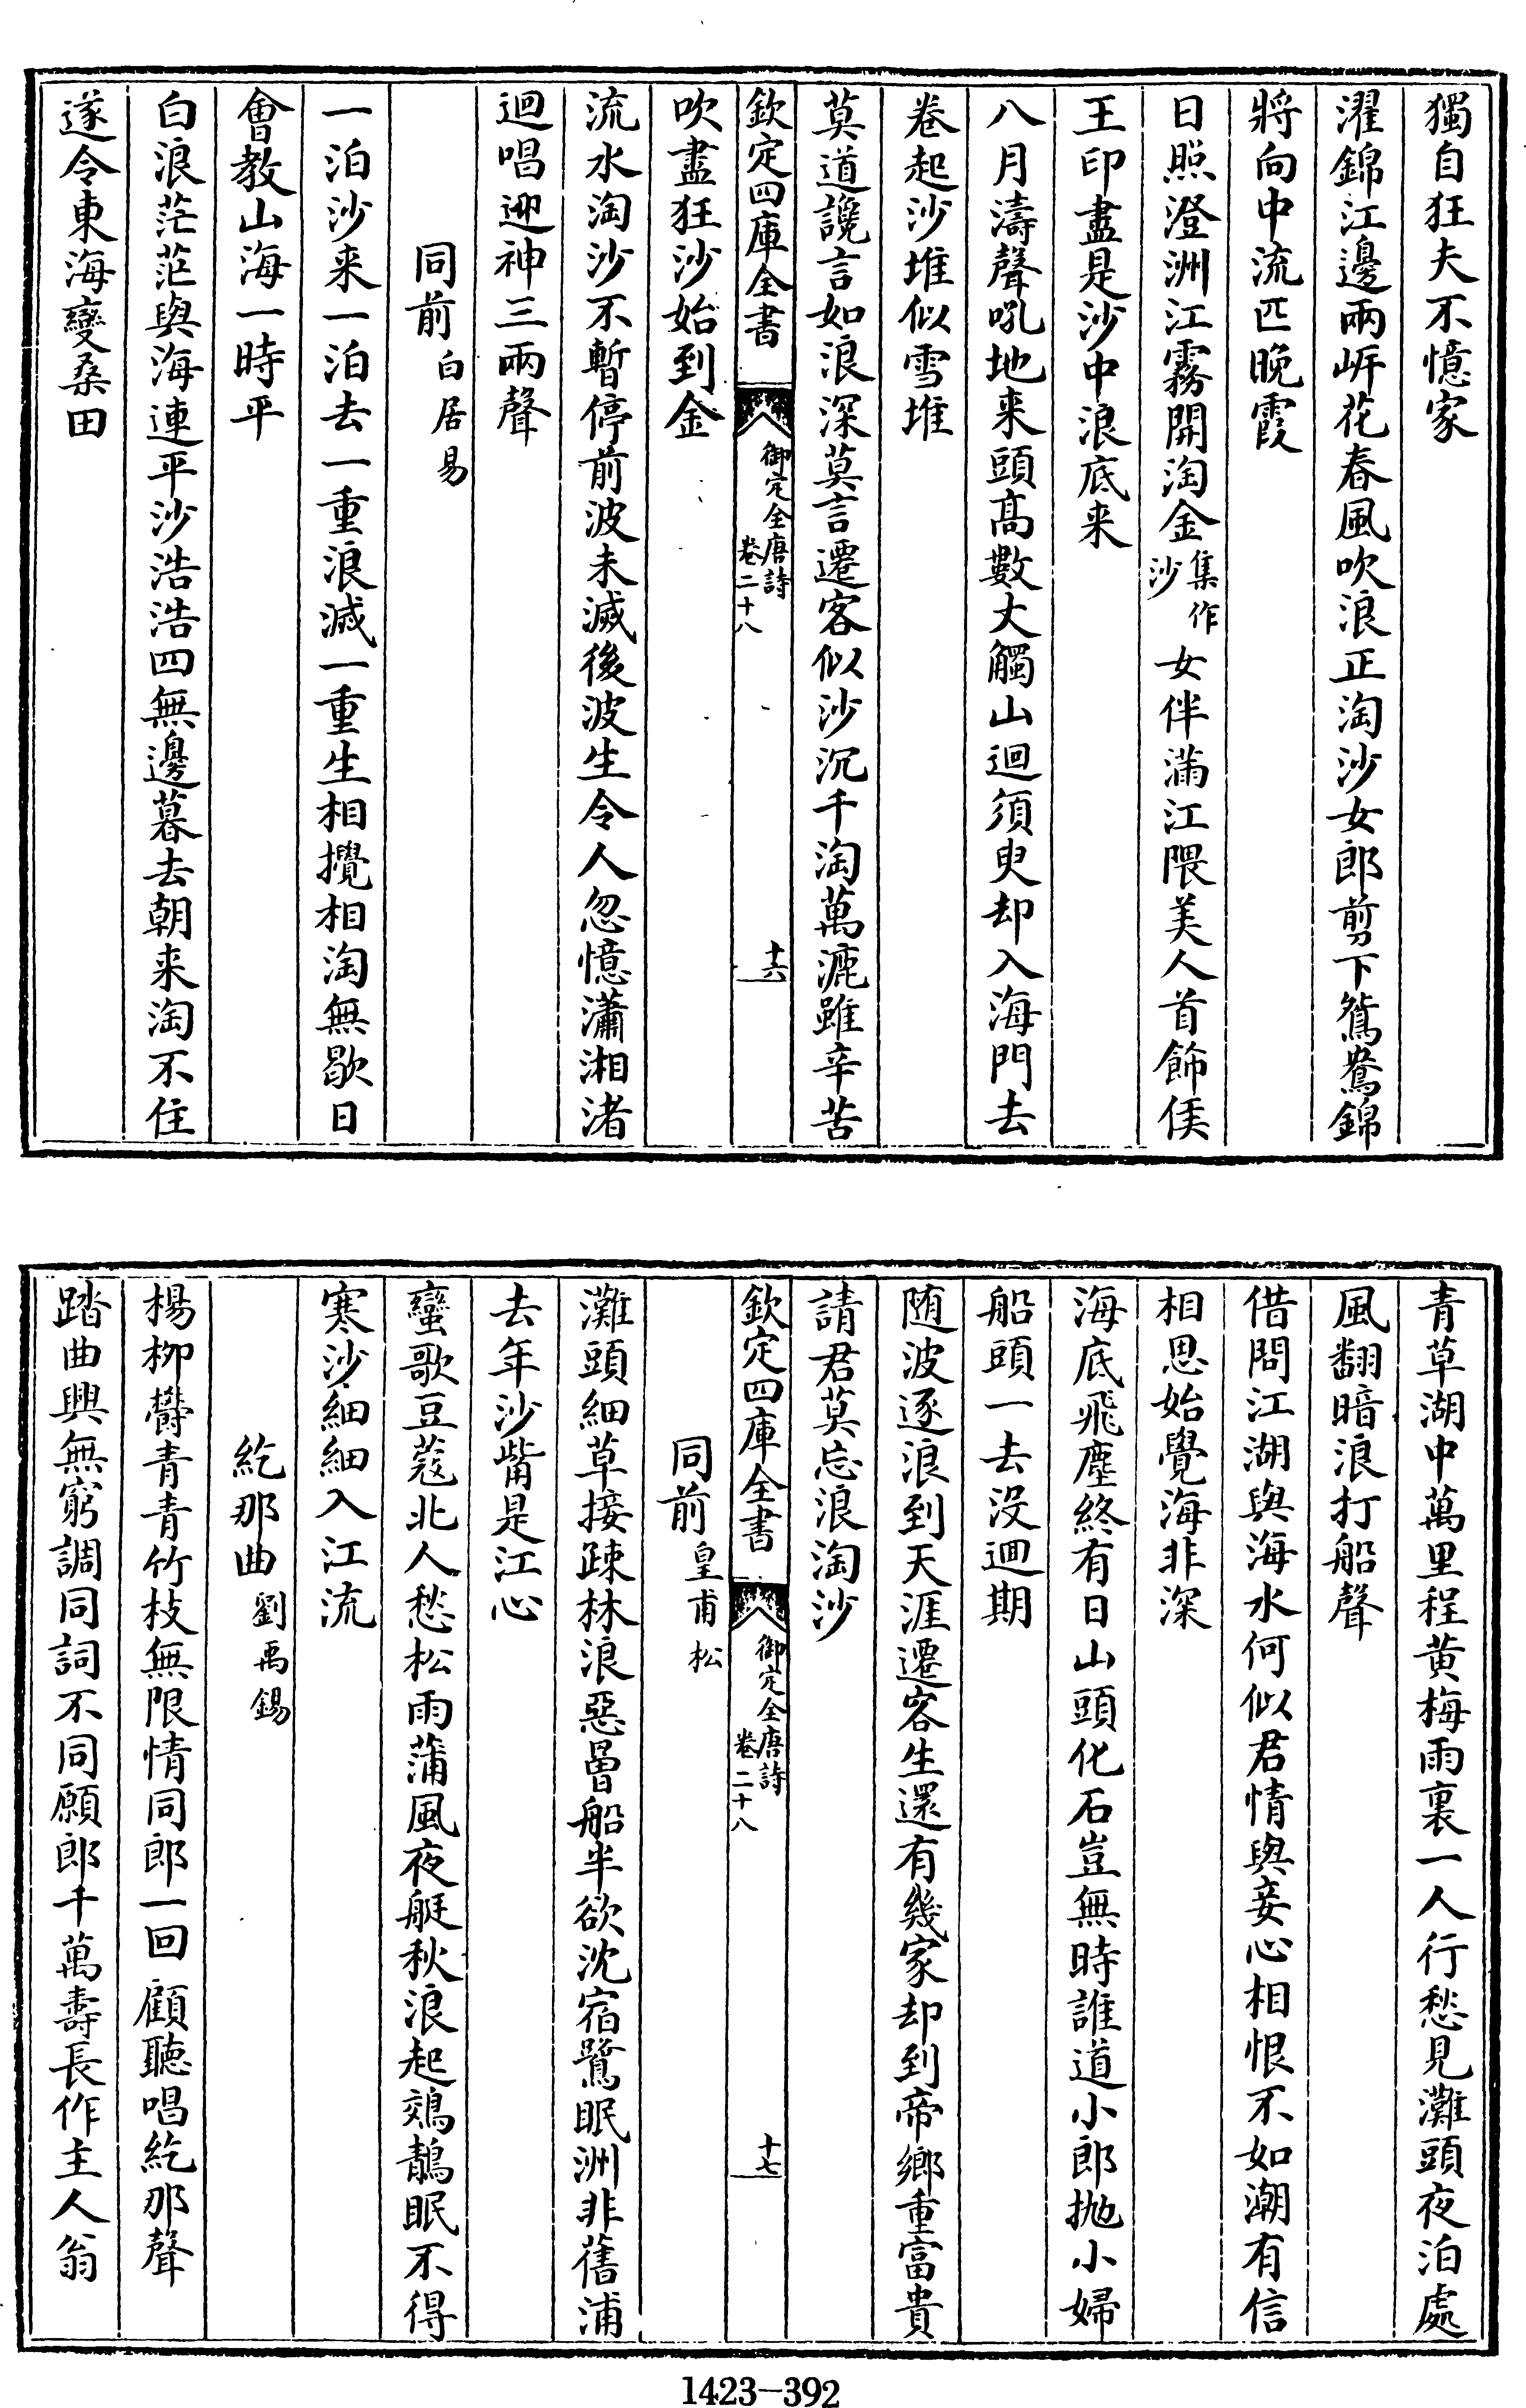 獨自狂夫不憶家
濯錦江邊兩岍花春風吹浪正淘沙女郎剪下鴛鴦錦
將向中流匹晚霞
日照澄洲江霧開淘金集作沙女伴滿江隈美人首飾侯
王印盡是沙中浪底来
八月濤聲吼地来頭髙數丈觸山迴須臾却入海門去
卷起沙堆似雪堆
莫道讒言如浪深莫言遷客似沙沉千淘萬漉雖辛苦
欽定四庫全書
御定全唐詩
卷二十八
十六
吹盡狂沙始到金
流水淘沙不暫停前波未滅後波生令人忽憶瀟湘渚
迴唱迎神三兩聲
同前白居易
一泊沙来一泊去一重浪滅一重生相攪相淘無歇日
㑹教山海一時平
白浪茫茫與海連平沙浩浩四無邊暮去朝来淘不住
遂令東海變桑田
青草湖中萬里程黄梅雨裏一人行愁見灘頭夜泊處
風翻暗浪打船聲
借問江湖與海水何似君情與妾心相恨不如潮有信
相思始覺海非深
海底飛塵終有日山頭化石豈無時誰道小郎抛小婦
船頭一去没迴期
随波逐浪到天涯遷客生還有幾家却到帝鄉重富貴
請君莫忘浪淘沙
欽定四庫全書
御定全唐詩
卷二十八
十七
同前皇甫松
灘頭細草接疎林浪惡罾船半欲沈宿鷺眠洲非舊浦
去年沙觜是江心
蠻歌豆蔻北人愁松雨蒲風夜艇秋浪起鵁鶄眠不得
寒沙細細入江流
紇那曲劉禹錫
楊栁欎青青竹枝無限情同郎一回顧聽唱紇那聲
踏曲興無窮調同詞不同願郎千萬壽長作主人翁
1423-392